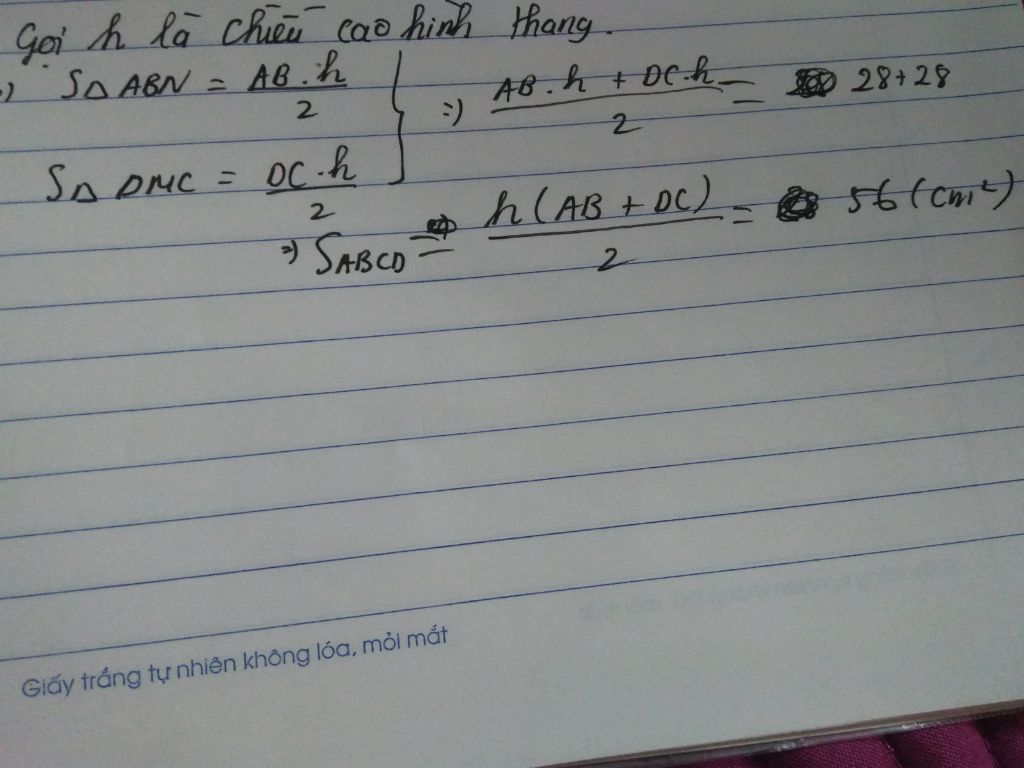 Gọi h là chiều cao hình thang.
S△ABN = AB.h/2
S△DMC = DC.h/2
=) (AB.h + DC.h)/2 = 28+28
=) SABCD = h(AB + DC)/2 = 56 (cm²)
Giấy trắng tự nhiên không lóa, mỏi mắt